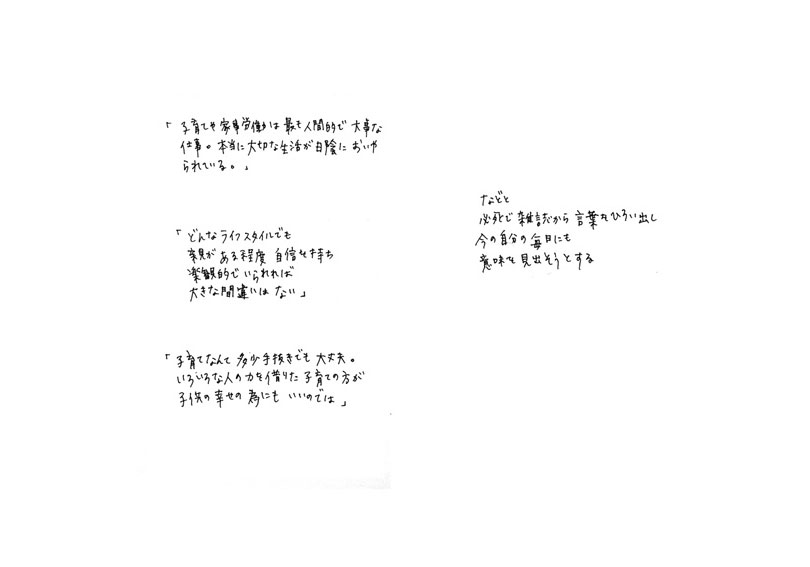 「子育てや家事労働かは最も人間的で大事な
仕事。本当に大切な生活が日陰においや
られている。」
「どんなライフスタイルでも
親がある程度自信を持ち
楽観的でいられれば
大きな間違いはない」
「子育てなんて多少手抜きでも大丈夫。
いろいろな人の力を借りた子育ての方が
子供の幸せの為にもいいのでは」
などと
必死で雑誌から言葉をひろい出し
今の自分の毎日にも
意味を見出そうとする